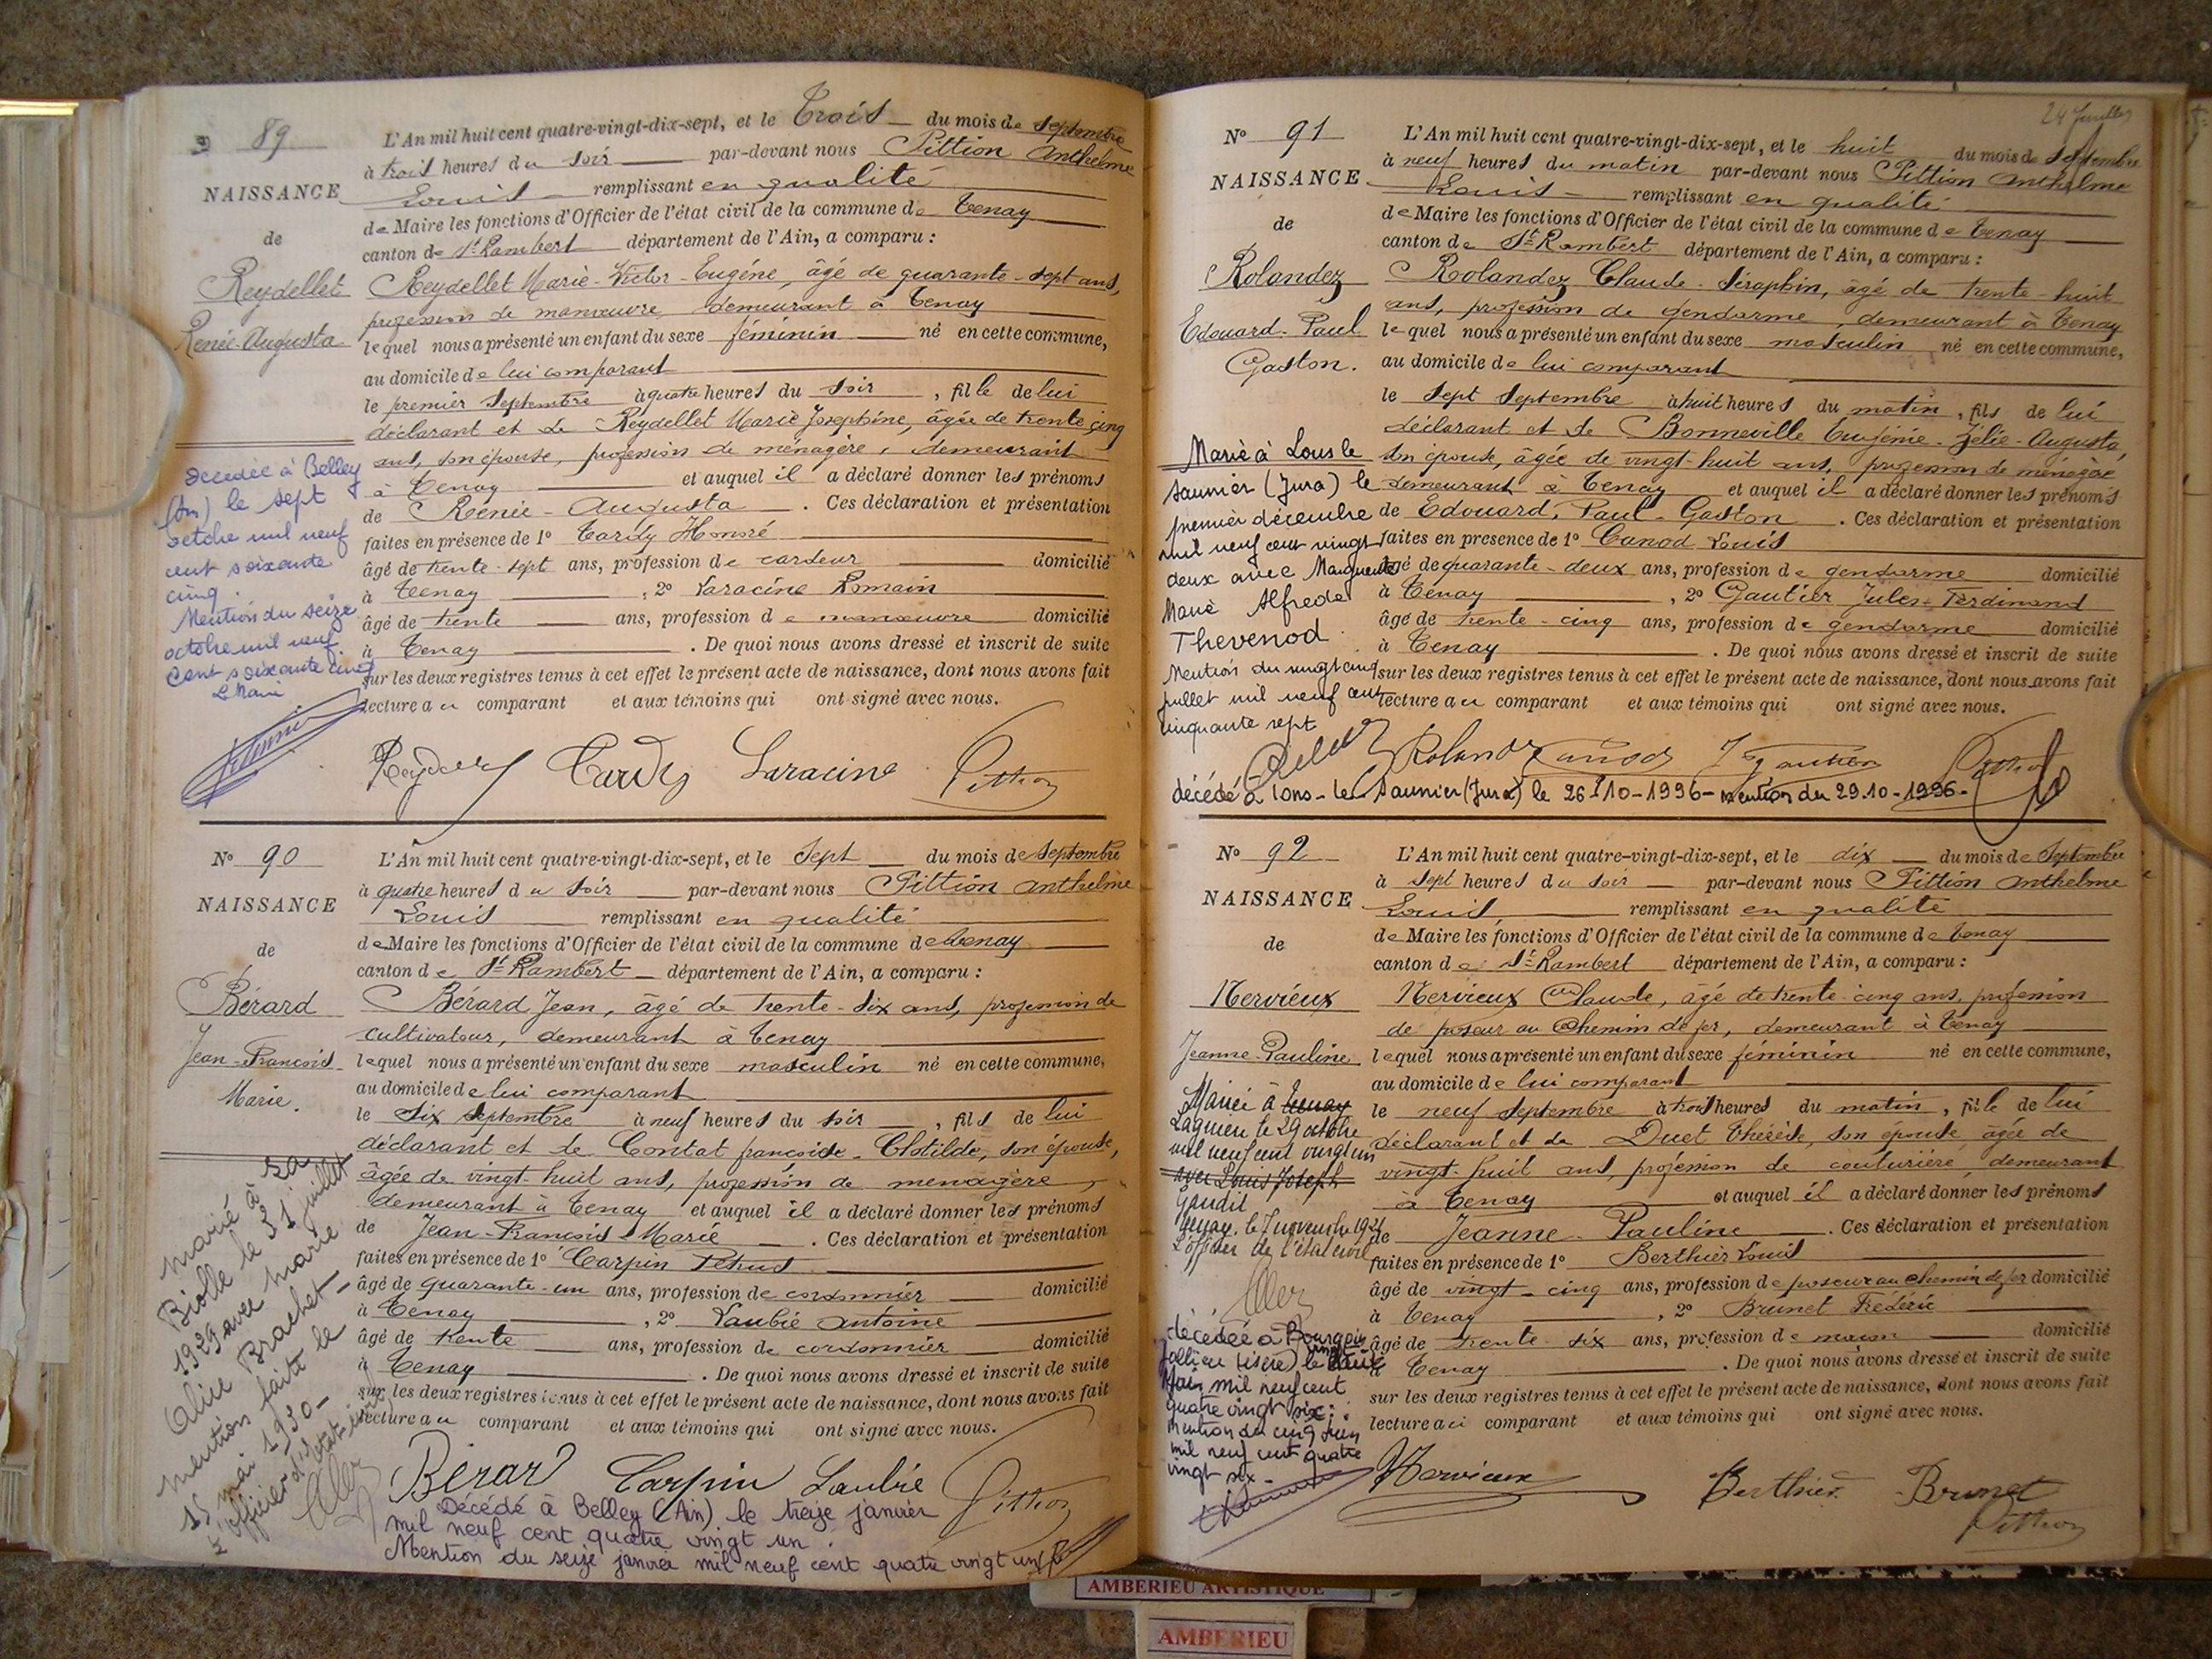 89
NAISSANCE
de
Reydellet
Renée-Augusta
L'An mil huit cent quatre-vingt-dix-sept, et le Trois du mois de Septembre
à trois heures du soir par-devant nous Pittion Anthelme
Louis remplissant en qualité
de Maire les fonctions d'Officier de l'état civil de la commune de Tenay
canton de St Rambert département de l'Ain, a comparu :
Reydellet Marie-Victor-Eugène, âgé de quarante-sept ans,
profession de manœuvre demeurant à Tenay
lequel nous a présenté un enfant du sexe féminin né en cette commune,
au domicile de lui comparant
le premier Septembre à quatre heures du soir, fille de lui
déclarant et de Reydellet Marie Joséphine, âgée de trente cinq
ans, son épouse, profession de ménagère, demeurant
à Tenay et auquel il a déclaré donner les prénoms
de Renée-Augusta. Ces déclaration et présentation
faites en présence de 1° Tardy Honoré
âgé de trente-sept ans, profession de cardeur domicilié
à Tenay, 2° Laracine Romain
âgé de trente ans, profession de manœuvre domicilié
à Tenay. De quoi nous avons dressé et inscrit de suite
sur les deux registres tenus à cet effet le présent acte de naissance, dont nous avons fait
lecture au comparant et aux témoins qui ont signé avec nous.
Décédée à Belley
(Ain) le sept
octobre mil neuf
cent soixante
cinq.
Mention du seize
octobre mil neuf
cent soixante cinq
Le Maire
Tardy Laracine Pittion
N° 90
NAISSANCE
de
Bérard
Jean-François-
Marie.
L'An mil huit cent quatre-vingt-dix-sept, et le Sept du mois de Septembre
à quatre heures du soir par-devant nous Pittion Anthelme
Louis remplissant en qualité
de Maire les fonctions d'Officier de l'état civil de la commune de Tenay
canton de St Rambert département de l'Ain, a comparu :
Bérard Jean, âgé de trente-six ans, profession de
cultivateur, demeurant à Tenay
lequel nous a présenté un enfant du sexe masculin né en cette commune,
au domicile de lui comparant
le Six Septembre à neuf heures du soir, fils de lui
déclarant et de Contat françoise-Clotilde, son épouse,
âgée de vingt-huit ans, profession de ménagère,
demeurant à Tenay et auquel il a déclaré donner les prénoms
de Jean-François-Marie. Ces déclaration et présentation
faites en présence de 1° Carpin Pétrus
âgé de quarante-un ans, profession de cordonnier domicilié
à Tenay, 2° Laubie Antoine
âgé de trente ans, profession de cordonnier domicilié
à Tenay. De quoi nous avons dressé et inscrit de suite
sur les deux registres tenus à cet effet le présent acte de naissance, dont nous avons fait
lecture au comparant et aux témoins qui ont signé avec nous.
marié à La
Biolle le 31 juillet
1929 avec Marie
Alice Brachet-
mention faite le
15 mai 1930-
L'officier d'état-civil
Bérard Carpin Laubie Pittion
Décédé à Belley (Ain) le treize janvier
mil neuf cent quatre vingt un.
Mention du seize janvier mil neuf cent quatre vingt un
24 Juillet
N° 91
NAISSANCE
de
Rolandez
Edouard-Paul
Gaston.
L'An mil huit cent quatre-vingt-dix-sept, et le huit du mois de Septembre
à neuf heures du matin par-devant nous Pittion Anthelme
Louis remplissant en qualité
de Maire les fonctions d'Officier de l'état civil de la commune de Tenay
canton de St Rambert département de l'Ain, a comparu :
Rolandez Claude-Séraphin, âgé de trente-huit
ans, profession de gendarme, demeurant à Tenay
lequel nous a présenté un enfant du sexe masculin né en cette commune,
au domicile de lui comparant
le Sept Septembre à huit heures du matin, fils de lui
déclarant et de Bonneville Eugénie-Zélie-Augusta,
son épouse, âgée de vingt-huit ans, profession de ménagère
demeurant à Tenay et auquel il a déclaré donner les prénoms
de Edouard, Paul-Gaston. Ces déclaration et présentation
faites en présence de 1° Canod Louis
âgé de quarante-deux ans, profession de gendarme domicilié
à Tenay, 2° Gautier Jules-Ferdinand
âgé de trente-cinq ans, profession de gendarme domicilié
à Tenay. De quoi nous avons dressé et inscrit de suite
sur les deux registres tenus à cet effet le présent acte de naissance, dont nous avons fait
lecture au comparant et aux témoins qui ont signé avec nous.
Marié à Lons le
Saunier (Jura) le
premier décembre
mil neuf cent vingt
deux avec Marguerite
Marie Alfrede
Thevenod.
Mention du vingt cinq
juillet mil neuf cent
cinquante sept
Rolandez Canod Gautier Pittion
décédé à Lons-le-Saunier (Jura) le 26-10-1996- mention du 29.10-1996-
N° 92
NAISSANCE
de
Nervieux
Jeanne-Pauline
L'An mil huit cent quatre-vingt-dix-sept, et le dix du mois de Septembre
à sept heures du soir par-devant nous Pittion Anthelme
Louis, remplissant en qualité
de Maire les fonctions d'Officier de l'état civil de la commune de Tenay
canton de St Rambert département de l'Ain, a comparu :
Nervieux Claude, âgé de trente-cinq ans, profession
de poseur au Chemin de fer, demeurant à Tenay
lequel nous a présenté un enfant du sexe féminin né en cette commune,
au domicile de lui comparant
le neuf Septembre à trois heures du matin, fille de lui
déclarant et de Duet Thérèse, son épouse âgée de
vingt-huit ans, profession de couturière, demeurant
à Tenay et auquel il a déclaré donner les prénoms
de Jeanne-Pauline. Ces déclaration et présentation
faites en présence de 1° Berthier Louis
âgé de vingt-cinq ans, profession de poseur au chemin de fer domicilié
à Tenay, 2° Brunet Frédéric
âgé de trente-six ans, profession de maçon domicilié
à Tenay. De quoi nous avons dressé et inscrit de suite
sur les deux registres tenus à cet effet le présent acte de naissance, dont nous avons fait
lecture au comparant et aux témoins qui ont signé avec nous.
Mariée à Tenay
Lagnieu le 29 octobre
mil neuf cent vingt un
avec Louis Joseph
Gaudil
Tenay, le 7 novembre 1921
L'officier de l'état civil
décédée à Bourgoin
Jallieu (Isère) le vingt
Mars mil neuf cent
quatre vingt six.
Mention du cinq Juin
mil neuf cent quatre
vingt six-
Nervieux Berthier Brunet
Pittion
AMBERIEU ARTISTIQUE
AMBERIEU